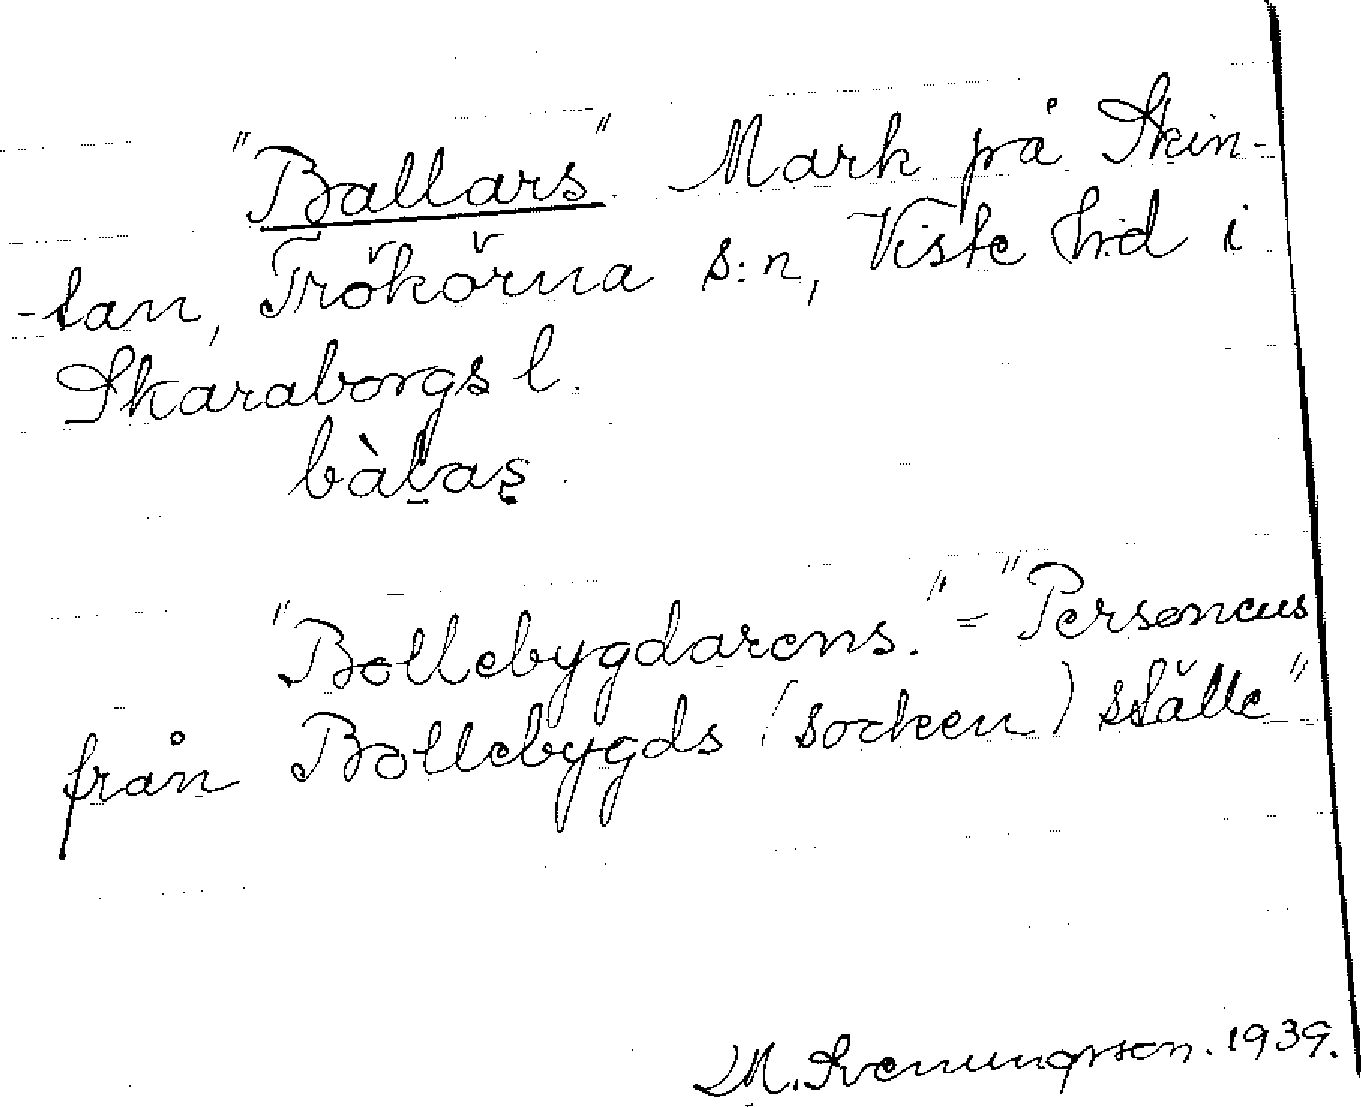 "Ballars". Mark på Skin-
-tan, Trökörna s:n, Viste hrd i
Skaraborgs l.
bàḷas̨.
"Bollebygdarens." = "Personens
från Bollebygds (socken) ställe"
M. Svenungsson. 1939.